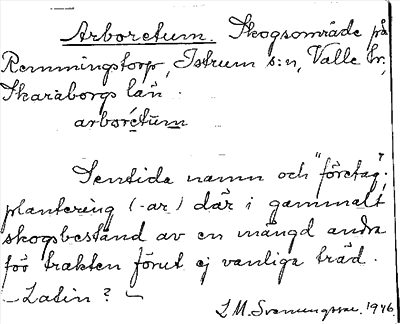 Arboretum. Skogsområde på
Remmingstorp, Istrum s:n, Valle hr,
Skaraborgs län.
arborétum
Sentida namn och "företag";
plantering (-ar) där i gammalt
skogsbestånd av en mängd andra
för trakten förut ej vanliga träd.
- Latin? -
L M. Svanungsson. 1946.